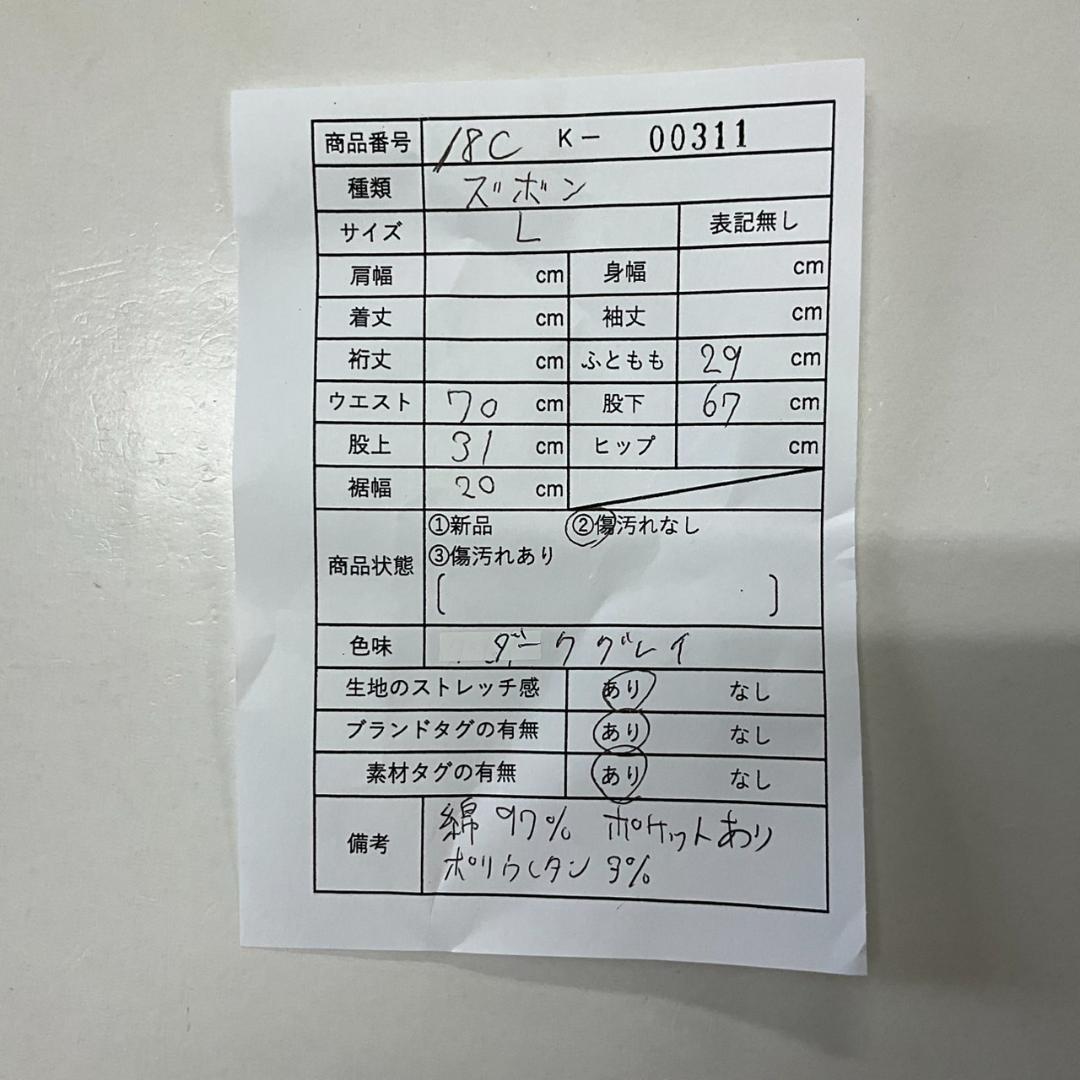 商品番号 18C K- 00311
種類 ズボン
サイズ L 表記無し
肩幅 cm 身幅 cm
着丈 cm 袖丈 cm
裄丈 cm ふともも 29 cm
ウエスト 70 cm 股下 67 cm
股上 31 cm ヒップ cm
裾幅 20 cm
商品状態 ①新品 ②傷汚れなし
③傷汚れあり
[ ]
色味 ダークグレイ
生地のストレッチ感 あり なし
ブランドタグの有無 あり なし
素材タグの有無 あり なし
備考 綿 97% ポケットあり
ポリウレタン 3%